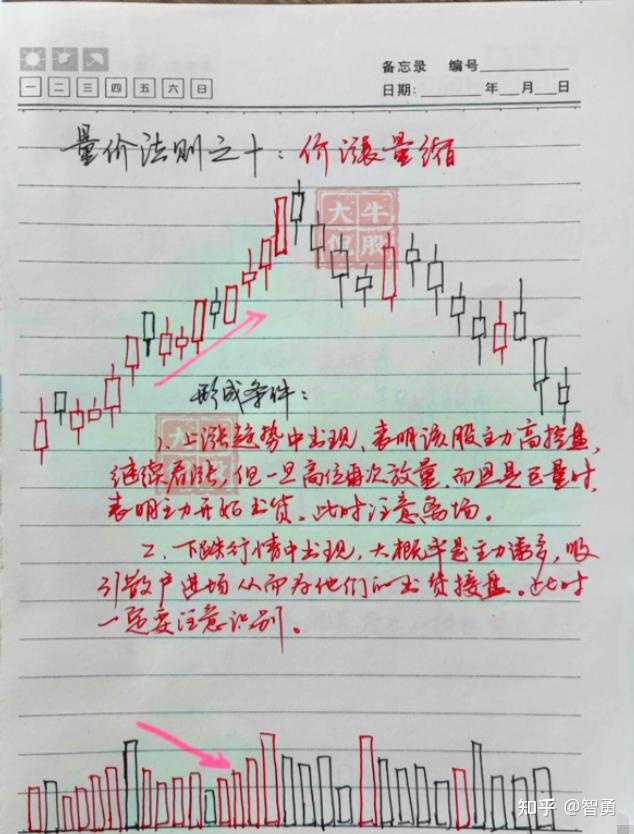 备忘录 编号
一 二 三 四 五 六 日
日期: 年 月 日
量价法则之十：价涨量缩
大牛
股
形成条件：
1、上涨趋势中出现，表明该股主力高控盘，
继续看涨，但一旦高位再次放量，而且是巨量时，
表明主力开始出货。此时注意离场。
大牛
2、下跌行情中出现，大概率是主力诱多，吸
引散户进场从而为他们的出货接盘。此时
一定要注意识别。
知乎 @智勇